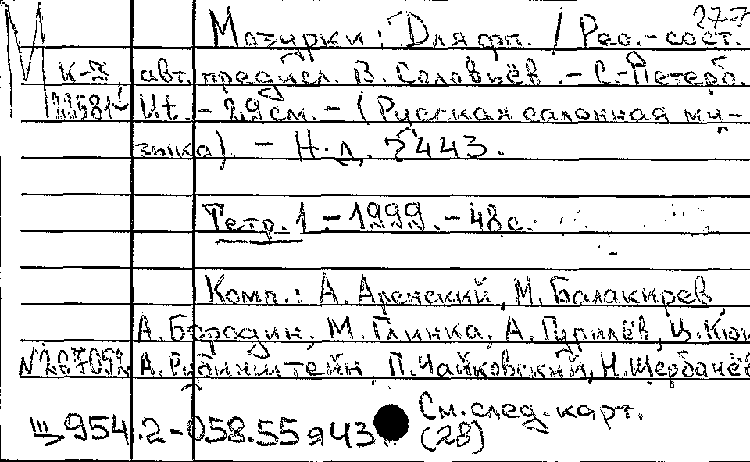 277
М Мазурки: Для фп. / Ред.-сост.
К-3 авт. предисл. В. Соловьёв. - С.-Петерб.
Ut. - 29 см. - (Русская салонная му-
зыка). - Н.д. 2443.
Тетр. 1 - 1999. - 48 с.
Комп.: А. Аренский, М. Балакирев
А. Бородин, М. Глинка, А. Гурилёв, Ц. Кюи
№267092 А. Рубинштейн, П. Чайковский, Н. Щербачёв
Щ954.2-058.55я43 См. след. карт.
(28)